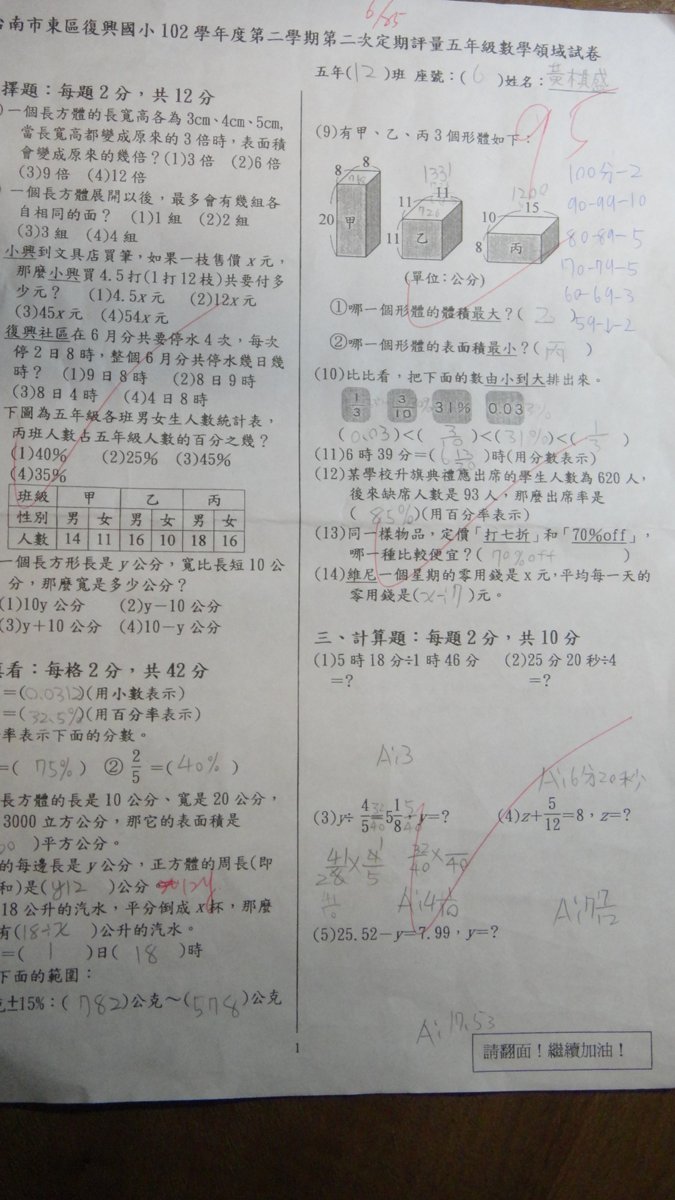 台南市東區復興國小102學年度第二學期第二次定期評量五年級數學領域試卷
6/25
五年(12)班 座號:(6)姓名:黃棋盛
95
擇題:每題2分,共12分
一個長方體的長寬高各為3cm、4cm、5cm,
當長寬高都變成原來的3倍時,表面積
會變成原來的幾倍?(1)3倍 (2)6倍
(3)9倍 (4)12倍
一個長方體展開以後,最多會有幾組各
自相同的面? (1)1組 (2)2組
(3)3組 (4)4組
小興到文具店買筆,如果一枝售價x元,
那麼小興買4.5打(1打12枝)共要付多
少元? (1)4.5x元 (2)12x元
(3)45x元 (4)54x元
復興社區在6月分共要停水4次,每次
停2日8時,整個6月分共停水幾日幾
時? (1)9日8時 (2)8日9時
(3)8日4時 (4)4日8時
下圖為五年級各班男女生人數統計表,
丙班人數占五年級人數的百分之幾?
(1)40% (2)25% (3)45%
(4)35%
班級 甲 乙 丙
性別 男 女 男 女 男 女
人數 14 11 16 10 18 16
一個長方形長是y公分,寬比長短10公
分,那麼寬是多少公分?
(1)10y公分 (2)y-10公分
(3)y+10公分 (4)10-y公分
看:每格2分,共42分
=(0.0312)(用小數表示)
=(32.5%)(用百分率表示)
率表示下面的分數。
=(75%) ② 2/5 =(40%)
長方體的長是10公分、寬是20公分,
3000立方公分,那它的表面積是
)平方公分。
的每邊長是y公分,正方體的周長(即
和)是(y12)公分 12y
18公升的汽水,平分倒成x杯,那麼
有(18÷x)公升的汽水。
=(1)日(18)時
下面的範圍:
±15%:(782)公克~(578)公克
(9)有甲、乙、丙3個形體如下:
8 8 20 甲
1331
11 11 11 720 乙
1200
10 15 8 丙
(單位:公分)
100分-2
90-99-10
80-89-5
70-79-5
60-69-3
59-↓-2
①哪一個形體的體積最大?(乙)
②哪一個形體的表面積最小?(丙)
(10)比比看,把下面的數由小到大排出來。
1/3 3/10 31% 0.03
(0.03)<(3/10)<(31%)<(1/3)
(11)6時39分=( )時(用分數表示)
(12)某學校升旗典禮應出席的學生人數為620人,
後來缺席人數是93人,那麼出席率是
(85%)(用百分率表示)
(13)同一樣物品,定價「打七折」和「70%off」,
哪一種比較便宜?(70%off)
(14)維尼一個星期的零用錢是x元,平均每一天的
零用錢是(x÷7)元。
三、計算題:每題2分,共10分
(1)5時18分÷1時46分 (2)25分20秒÷4
=? =?
A:3
A:6分20秒
(3)y÷4/5=5 1/8,y=? (4)z+5/12=8,z=?
41/8×4/5 32/40×
A:4 1/10
A:7 7/12
(5)25.52-y=7.99,y=?
A:17.53
1
請翻面!繼續加油!